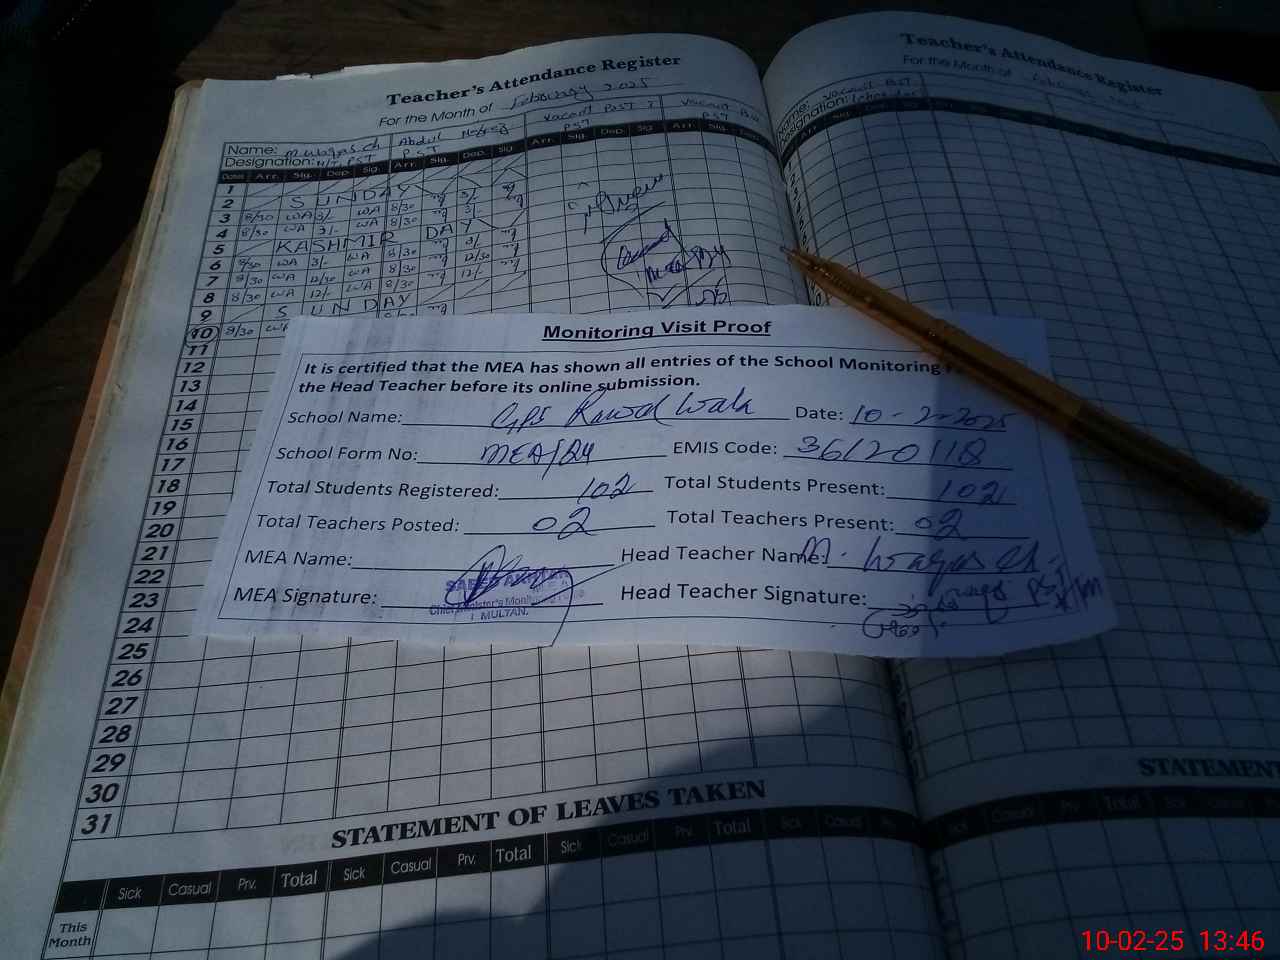 Teacher's Attendance Register
For the Month of February 2025
Name: M. Waqas Ch Abdul Vacant Post Vacant
Designation: H/T, PST PST PST PST
Dates Arr. Sig. Dep. Sig. Arr. Sig. Dep. Sig. Arr. Sig. Dep. Sig. Arr. Sig.
1
2 SUNDAY
3 8/30 WA 3/- WA 8/30 3/-
4 8/30 WA 3/- WA 8/30 3/-
5 KASHMIR DAY
6 8/30 WA 3/- WA 8/30 3/-
7 8/30 WA 12/30 WA 8/30 12/30
8 8/30 WA 12/- WA 8/30 12/-
9 SUNDAY
10 8/30
11
12
13
14
15
16
17
18
19
20
21
22
23
24
25
26
27
28
29
30
31
Monitoring Visit Proof
It is certified that the MEA has shown all entries of the School Monitoring
the Head Teacher before its online submission.
School Name: GPS Rawal Wala Date: 10-2-2025
School Form No: MEA/24 EMIS Code: 36120118
Total Students Registered: 102 Total Students Present: 102
Total Teachers Posted: 02 Total Teachers Present: 02
MEA Name: Head Teacher Name: M. Waqas Ch.
MEA Signature: Head Teacher Signature:
Chief Minister's Monitoring
MULTAN.
STATEMENT OF LEAVES TAKEN
Sick Casual Prv. Total Sick Casual Prv. Total Sick Casual
This
Month
Teacher's Attendance Register
For the Month of
Name: Vacant Post
Designation:
Arr. Sig.
STATEMENT
Prv. Total Sick Casual
10-02-25 13:46